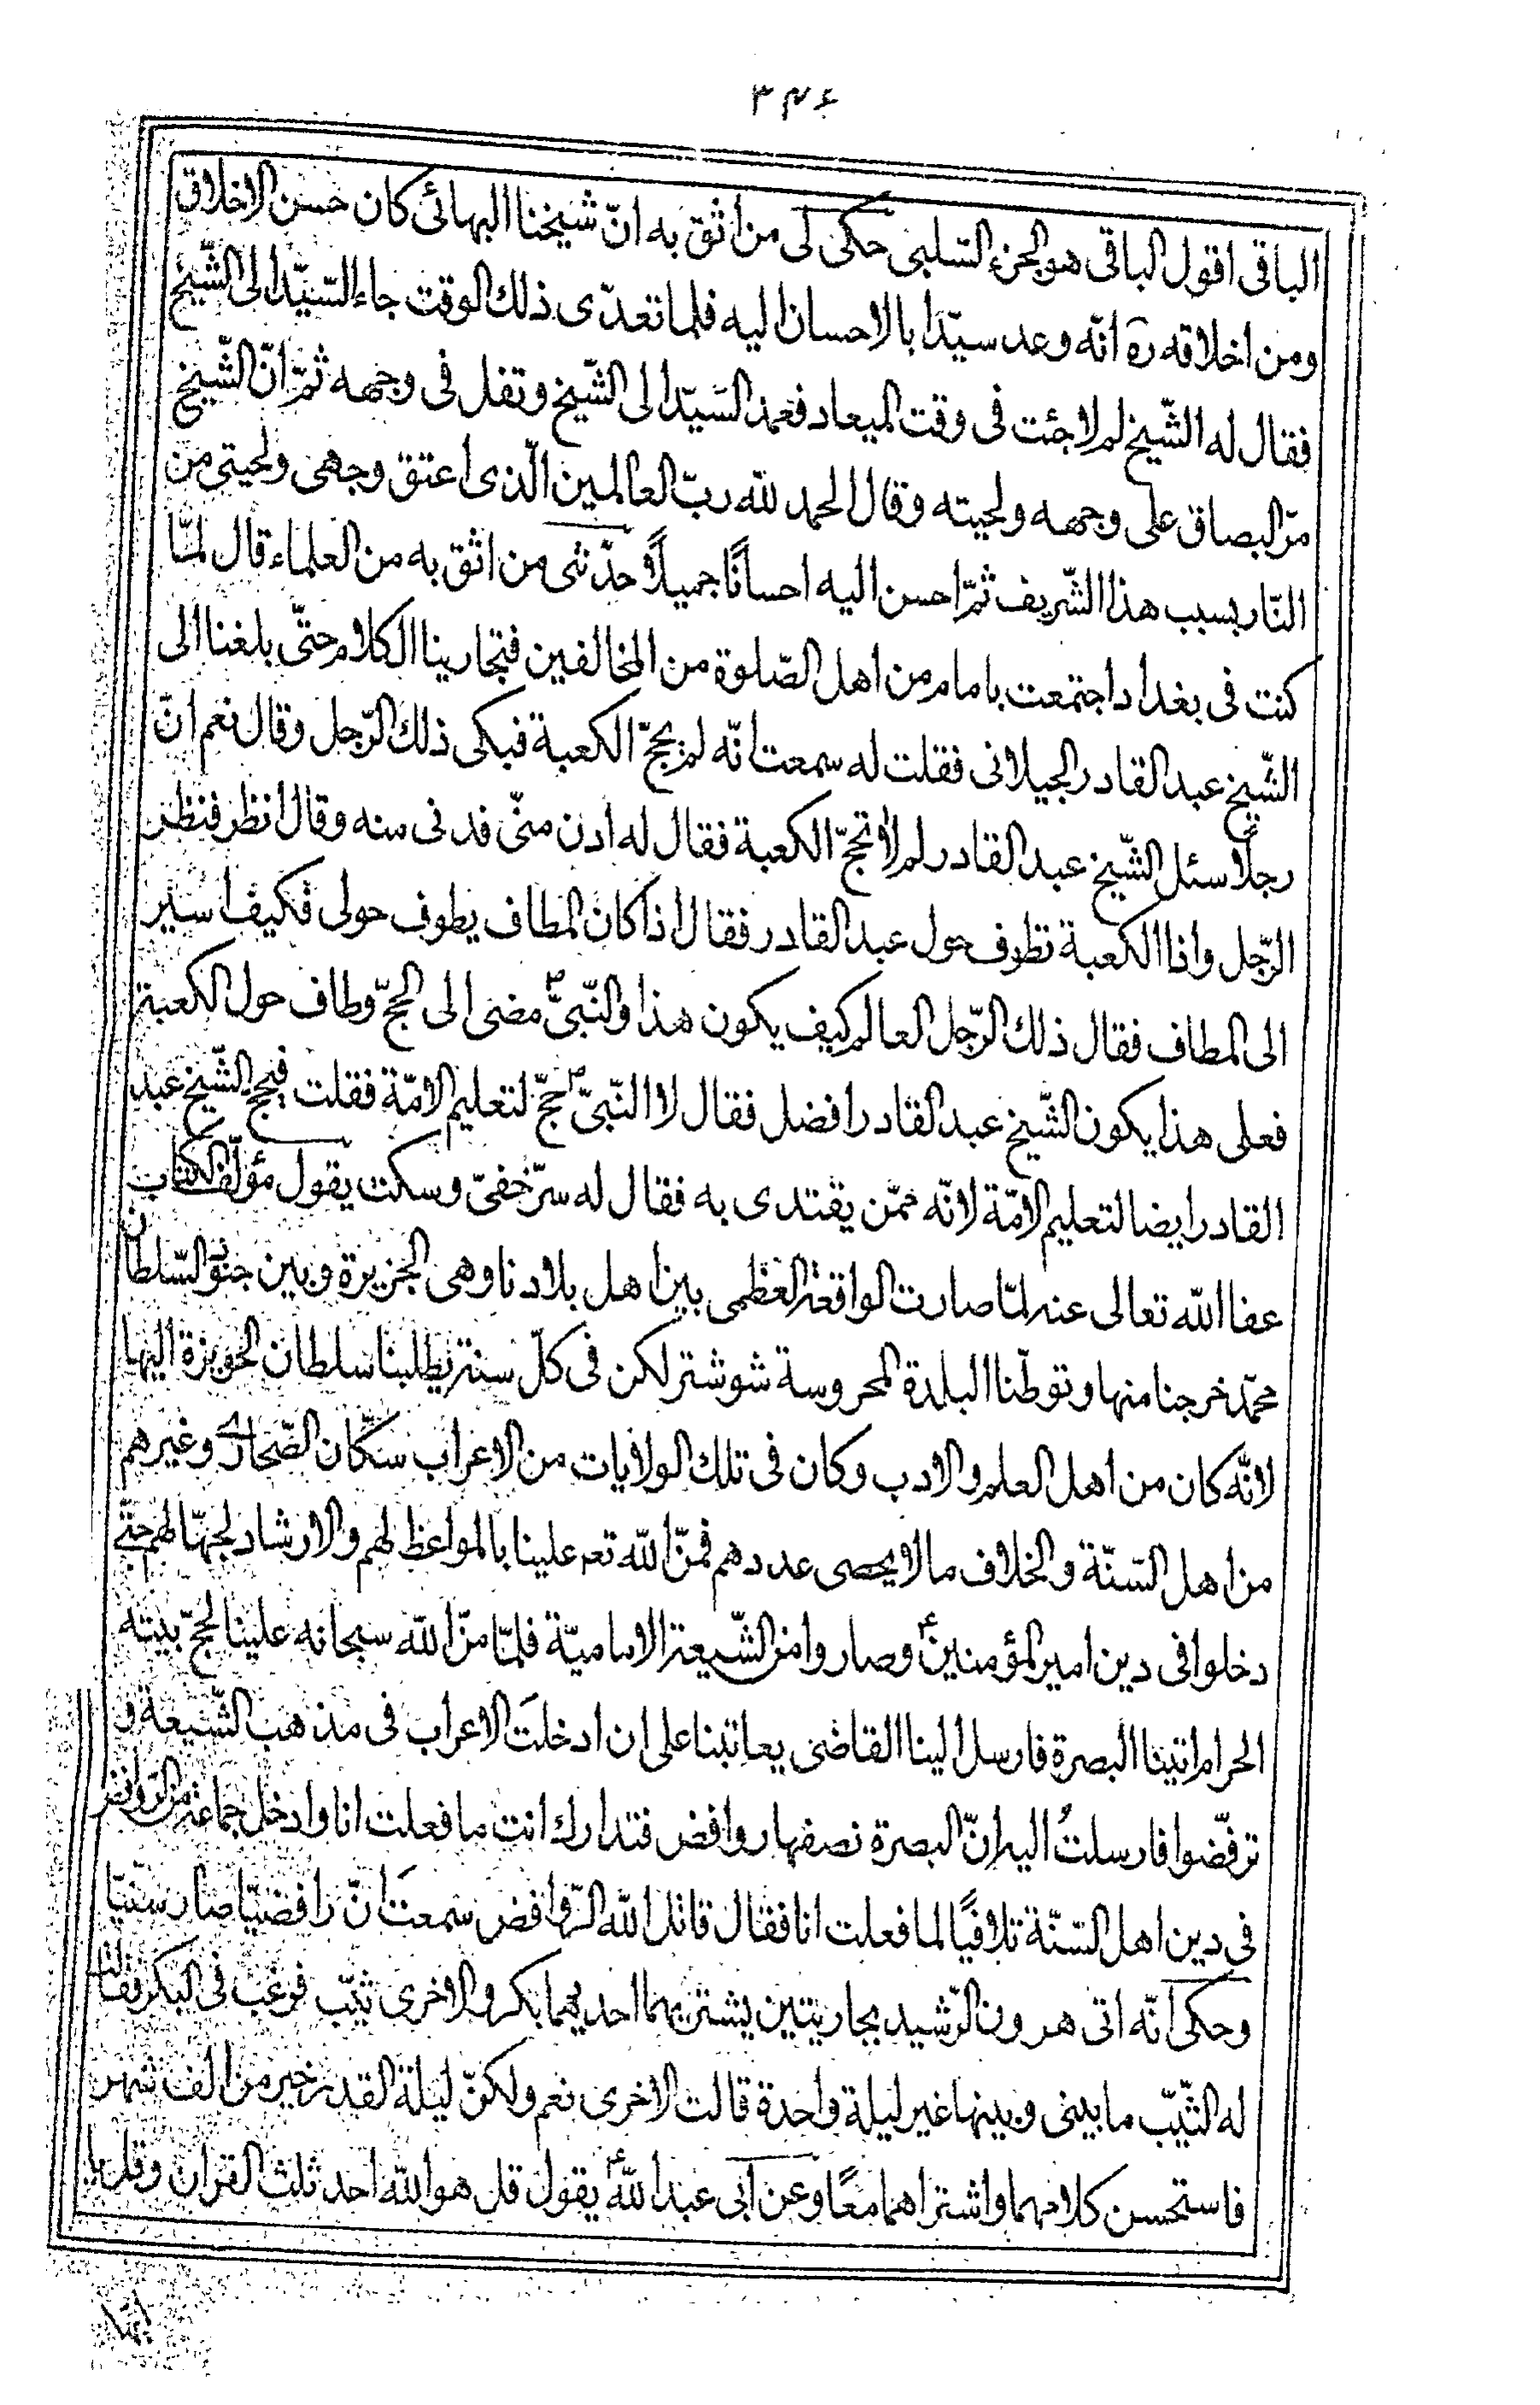 ٣٤٦
الباقى اقول الباقى هو الجزء السّلبى حكى لى من اثق به انّ شيخنا البهائى كان حسن الاخلاق
ومن اخلاقه ره انّه وعد سيّدا بالاحسان اليه فلما تعدّى ذلك الوقت جاء السّيّد الى الشّيخ
فقال له الشّيخ لم لا جئت فى وقت الميعاد فعمد السّيّد الى الشّيخ وتفل فى وجهه ثمّ انّ الشّيخ
مرّ البصاق على وجهه ولحيته وقال الحمد للّه ربّ العالمين الّذى اعتق وجهى ولحيتى من
النّار بسبب هذا الشّريف ثمّ احسن اليه احسانًا جميلًا وحدّثنى من اثق به من العلماء قال لمّا
كنت فى بغداد اجتمعت بامام من اهل الصّلوة من المخالفين فتجارينا الكلام حتّى بلغنا الى
الشّيخ عبد القادر الجيلانى فقلت له سمعت انّه لم يحجّ الكعبة فبكى ذلك الرّجل وقال نعم انّ
رجلًا سئل الشّيخ عبد القادر لم لا تحجّ الكعبة فقال له ادن منّى فدنى منه وقال انظر فنظر
الرّجل واذا الكعبة تطوف حول عبد القادر فقال اذا كان المطاف يطوف حولى فكيف اسير
الى المطاف فقال ذلك الرّجل العالم كيف يكون هذا والنّبىّ ص مضى الى الحجّ وطاف حول الكعبة
فعلى هذا يكون الشّيخ عبد القادر افضل فقال لا النّبىّ ص حجّ لتعليم الامّة فقلت فيحج الشّيخ عبد
القادر ايضا لتعليم الامّة لانّه ممّن يقتدى به فقال له سرّ خفىّ وسكت يقول مؤلّف الكتاب
عفا اللّه تعالى عنه لمّا صارت الواقعة العظمى بين اهل بلادنا وهى الجزيرة وبين جنود السّلطان
محمّد خرجنا منها وتوطّنا البلدة المحروسة شوشتر لكن فى كلّ سنة يطلبنا سلطان الحويزة اليها
لانّه كان من اهل العلم والادب وكان فى تلك الولايات من الاعراب سكّان الصّحارى وغيرهم
من اهل السّنّة والخلاف ما لا يحصى عددهم فمنّ اللّه تعه علينا بالمواعظ لهم والارشاد لجهّالهم حتّى
دخلوا فى دين امير المؤمنين ع وصاروا من الشّيعة الاماميّة فلمّا منّ اللّه سبحانه علينا لحجّ بيته
الحرام اتينا البصرة فارسل الينا القاضى يعاتبنا على ان ادخلت الاعراب فى مذهب الشّيعة و
ترفّضوا فارسلتُ اليه انّ البصرة نصفها روافض فتدارك انت ما فعلت انا وادخل جماعة من الرّوافض
فى دين اهل السّنّة تلافيًا لما فعلت انا فقال قاتل اللّه الرّوافض سمعتَ انّ رافضيّا صار سنّيّا
وحكى انّه اتى هرون الرّشيد بجاريتين يشتريهما احديهما بكر والاخرى ثيّب فرغب فى البكر فقالت
له الثّيّب ما بينى وبينها غير ليلة واحدة قالت الاخرى نعم ولكنّ ليلة القدر خير من الف شهر
فاستحسن كلامهما واشتراهما معًا وعن ابى عبد اللّه ع يقول قل هو اللّه احد ثلث القران وقل يا
ايّها